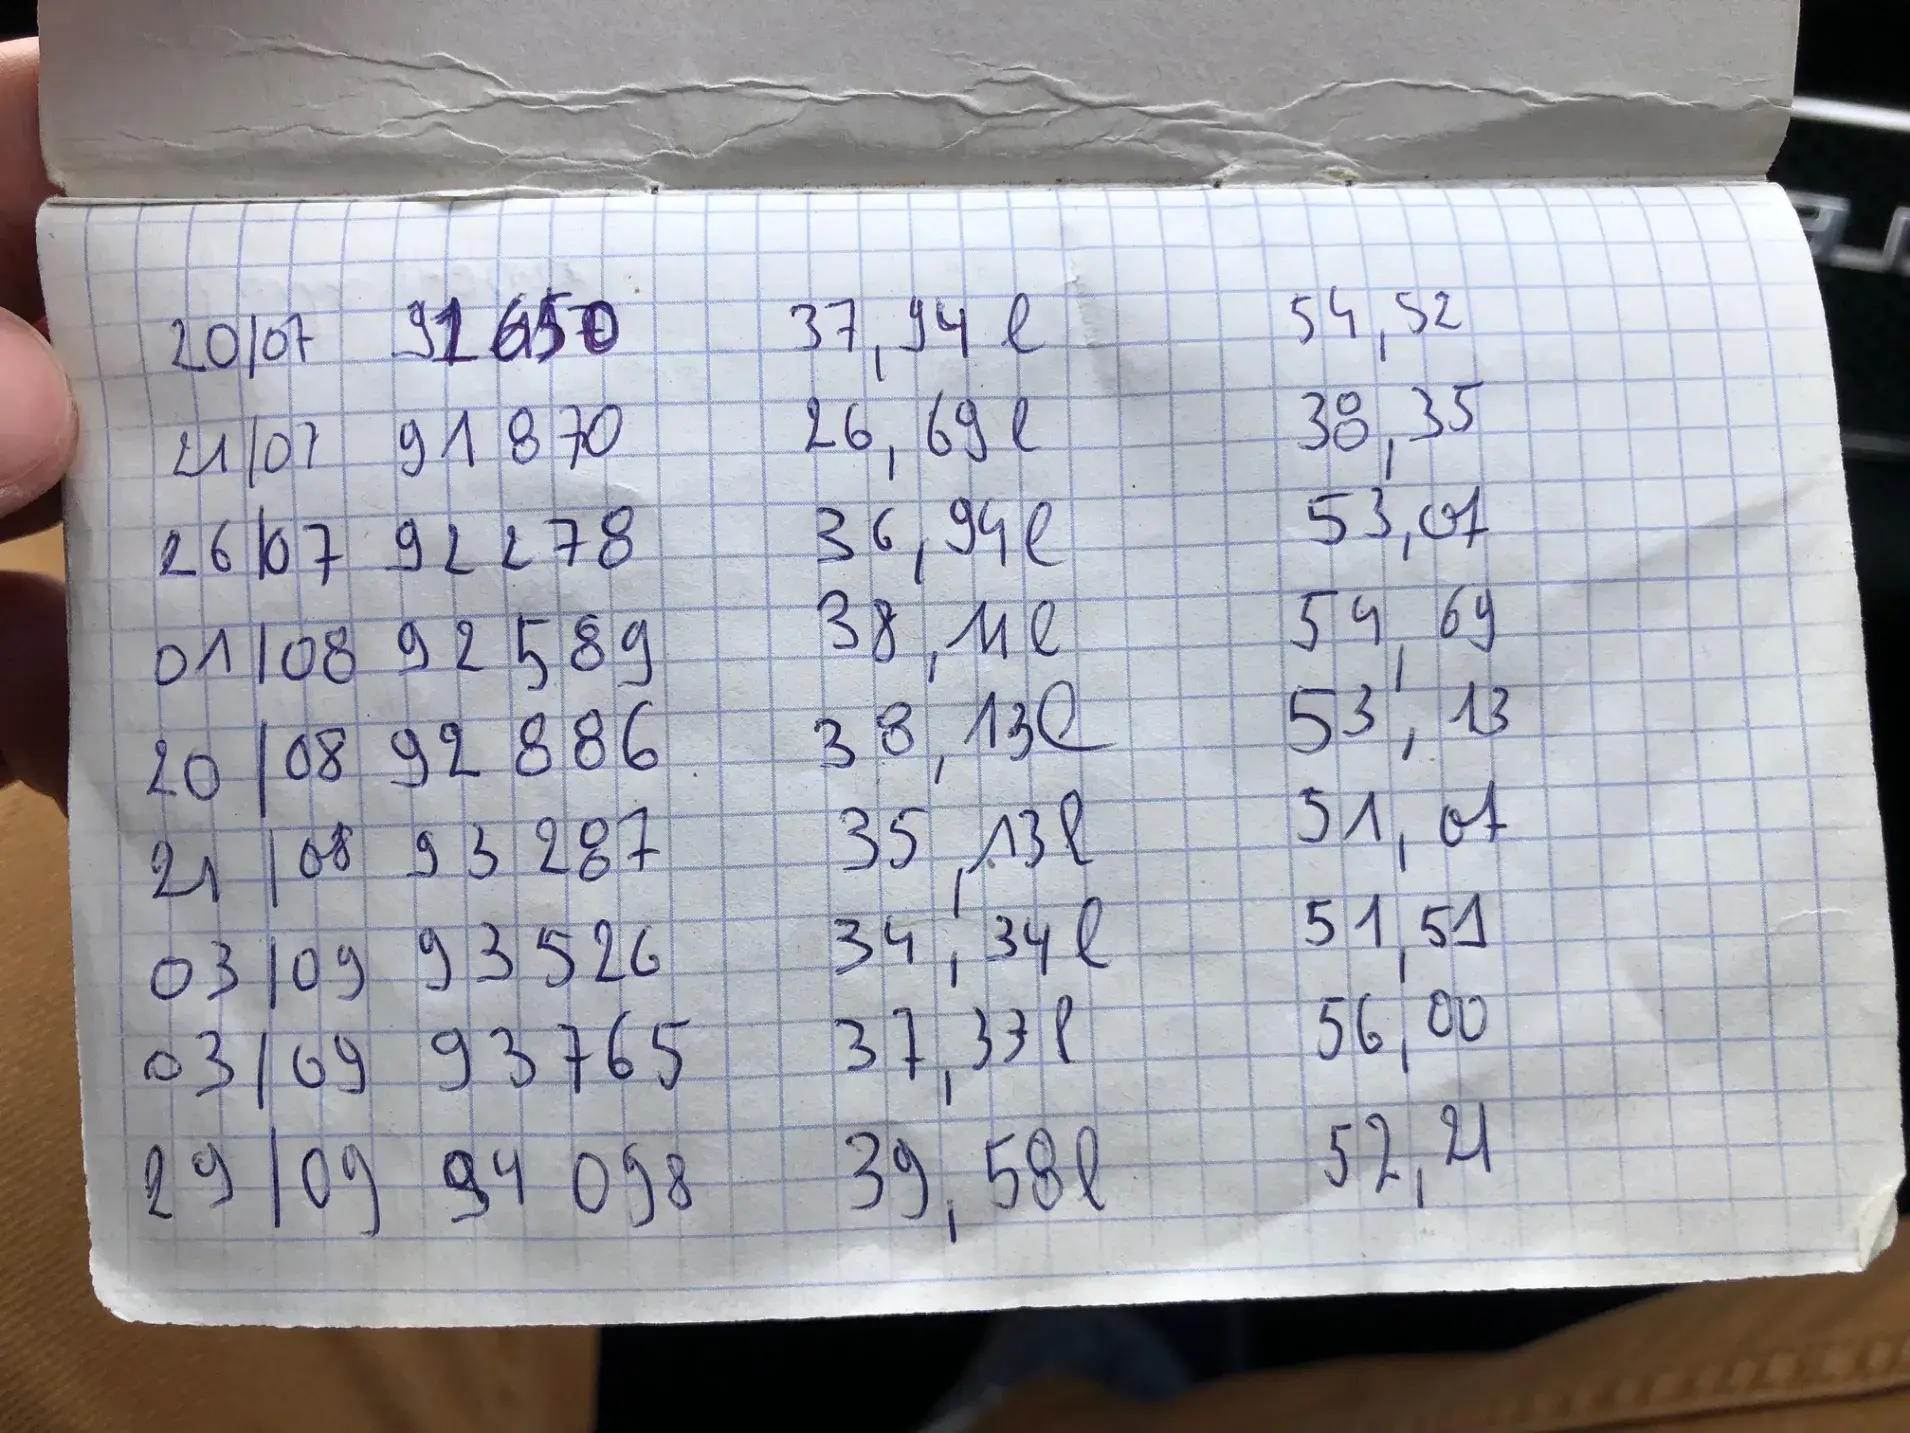 20/07 91650 37,94 l 54,52
21/07 91 870 26,69 l 38,35
26/07 92 278 36,94 l 53,07
01/08 92 589 38,11 l 54,69
20/08 92 886 38,13 l 53,13
21/08 93 287 35,13 l 51,07
03/09 93 526 34,34 l 51,51
03/09 93 765 37,33 l 56,00
29/09 94 098 39,58 l 52,21